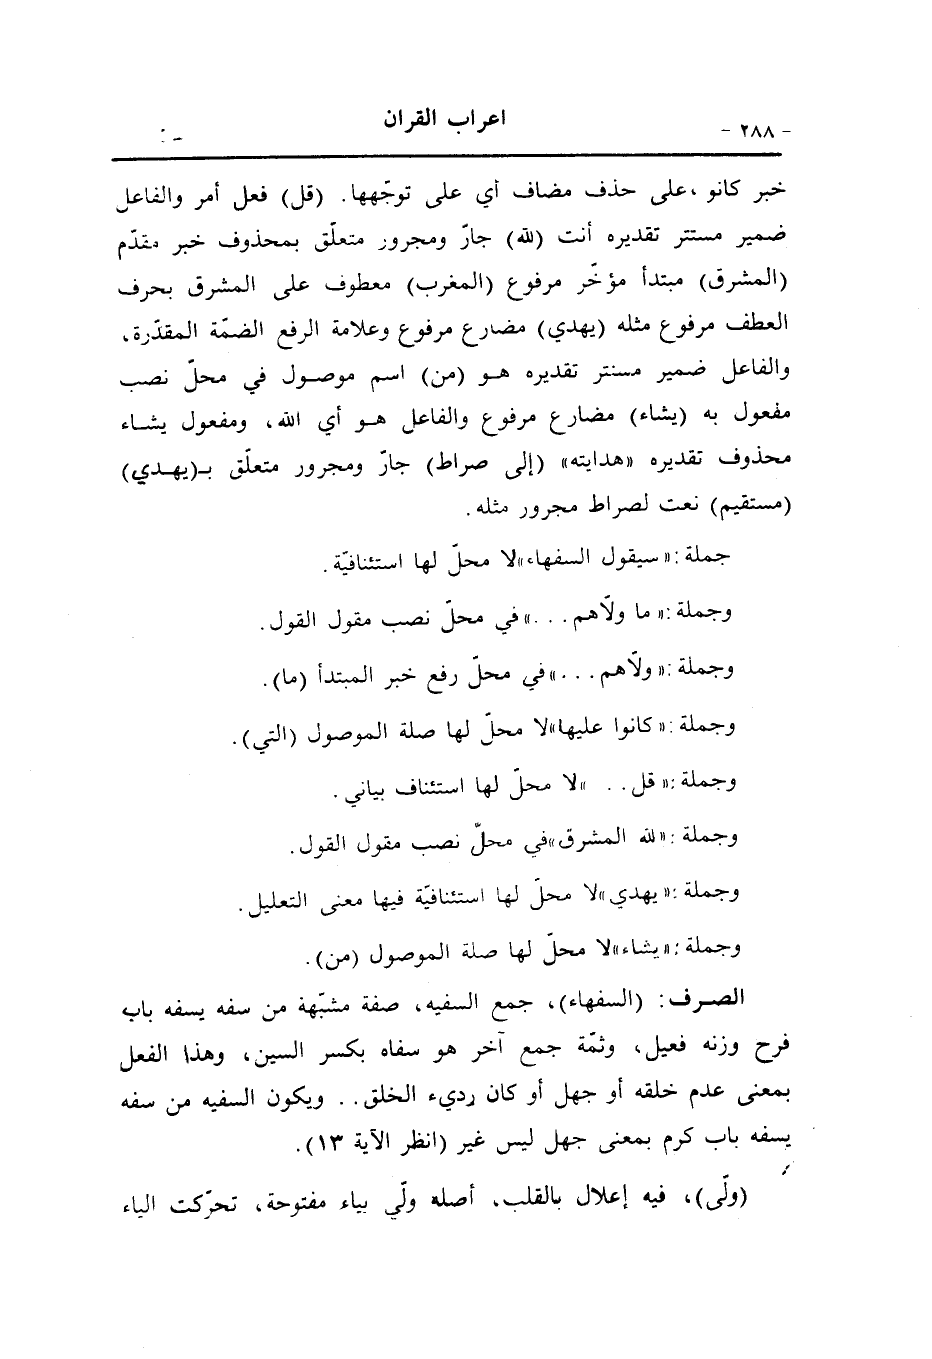 - ٢٨٨ - اعراب القران
خبر كانو ، على حذف مضاف أي على توجّهها. (قل) فعل أمر والفاعل
ضمير مستتر تقديره أنت (لله) جارّ ومجرور متعلّق بمحذوف خبر مقدّم
(المشرق) مبتدأ مؤخّر مرفوع (المغرب) معطوف على المشرق بحرف
العطف مرفوع مثله (يهدي) مضارع مرفوع وعلامة الرفع الضمّة المقدّرة،
والفاعل ضمير مستتر تقديره هـو (من) اسم موصـول في محلّ نصب
مفعول به (يشاء) مضارع مرفوع والفاعل هـو أي الله، ومفعول يشـاء
محذوف تقديره «هدايته» (إلى صراط) جارّ ومجرور متعلّق بـ(يهـدي)
(مستقيم) نعت لصراط مجرور مثله.
جملة :« سيقول السفهاء»لا محلّ لها استئنافيّة.
وجملة :« ما ولّاهم . . .» في محلّ نصب مقول القول.
وجملة :« ولّاهم . . .»في محلّ رفع خبر المبتدأ (ما).
وجملة :« كانوا عليها»لا محلّ لها صلة الموصول (التي).
وجملة :« قل . . »لا محلّ لها استئناف بياني.
وجملة :«لله المشرق»في محلّ نصب مقول القول.
وجملة :« يهدي»لا محلّ لها استئنافيّة فيها معنى التعليل.
وجملة :« يشاء»لا محلّ لها صلة الموصول (من).
الصرف: (السفهاء)، جمع السفيه، صفة مشبّهة من سفه يسفه باب
فرح وزنه فعيل، وثمّة جمع آخر هو سفاه بكسر السين، وهذا الفعل
بمعنى عدم خلقه أو جهل أو كان رديء الخلق. . ويكون السفيه من سفه
يسفه باب كرم بمعنى جهل ليس غير (انظر الآية ١٣).
(ولّى)، فيه إعلال بالقلب، أصله ولّي بياء مفتوحة، تحرّكت الياء